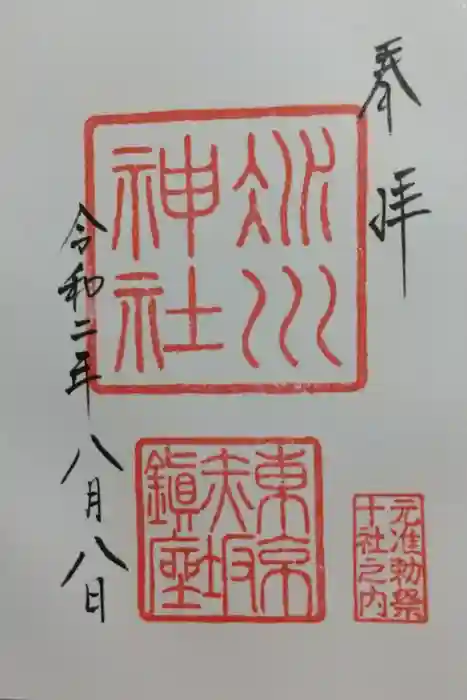 奉拝
氷川
神社
東京
赤坂
鎮座
元准勅祭
十社之内
令和二年八月八日